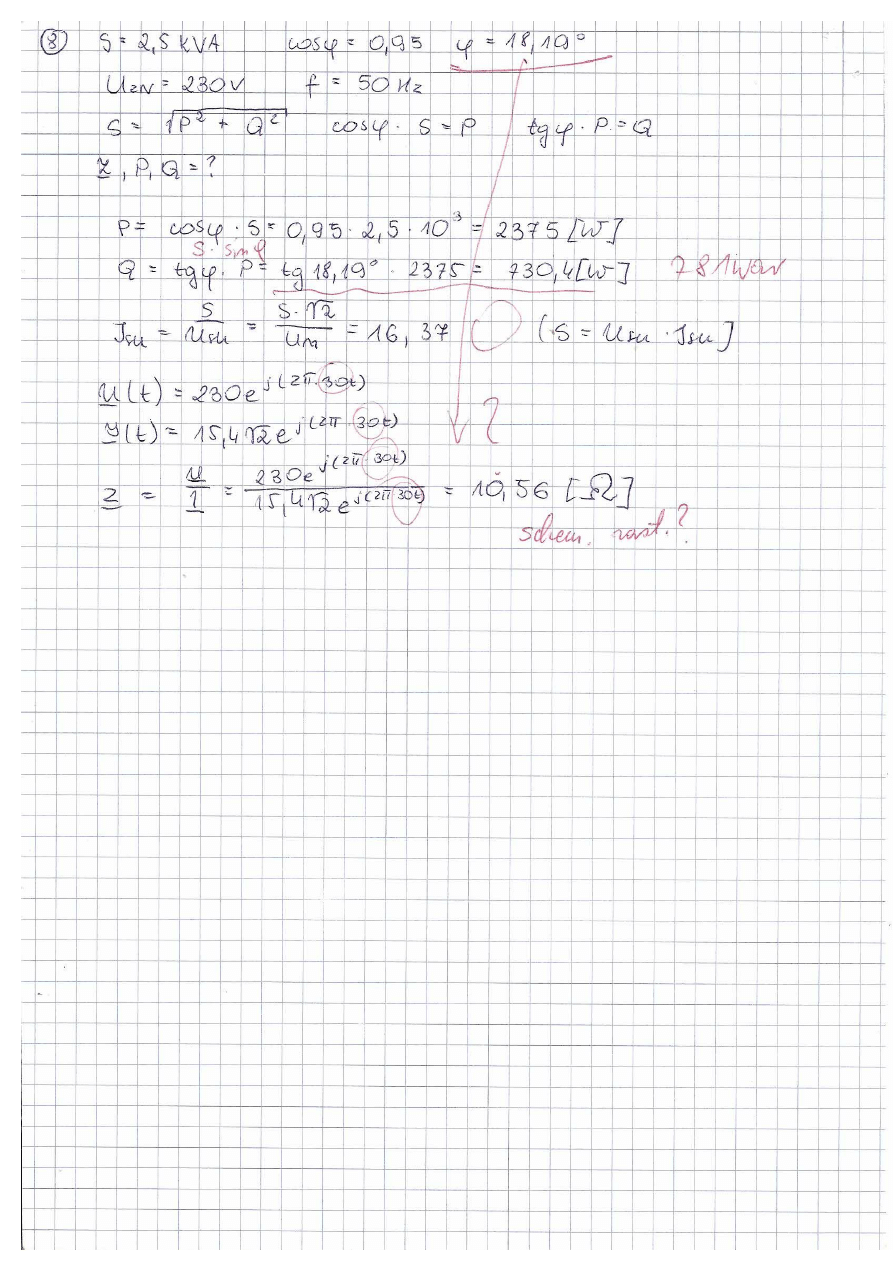 8 S = 2,5 KVA cosφ = 0,95 φ = 18,19°
U₂N = 230V f = 50 Hz
S = √(P² + Q²) cosφ · S = P tgφ · P = Q
Z, P, Q = ?
P = cosφ · S = 0,95 · 2,5 · 10³ = 2375 [W]
S · sinφ
Q = tgφ · P = tg 18,19° · 2375 = 730,4 [W] 781 War
Isu = S/Usu = S·√2/Um = 16,37 (S = Usu · Isu]
u(t) = 230e^j(2π·30t)
y(t) = 15,4√2e^j(2π·30t) ?
z = u/1 = 230e^j(2π·30t)/15,4√2e^j(2π·30t) = 10,56 [Ω]
schem. zast.?